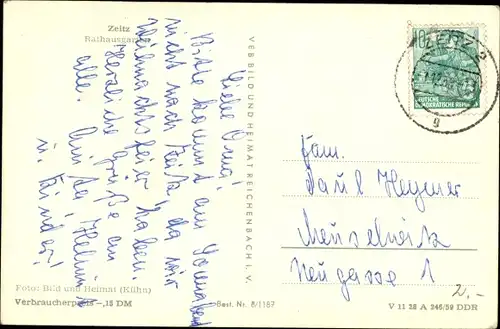 Zeitz
Rathausgarten
Liebe Oma!
Bitte kommt am Sonnabend
nicht nach Zeitz, da wir
Weihnachtsfeier haben.
Herzliche Grüße an
alle.
u. Kinder!
VEB BILD UND HEIMAT REICHENBACH I. V.
Foto: Bild und Heimat (Kühn)
Verbraucherpreis -,15 DM
Best. Nr. 8/1187
10
DEUTSCHE
DEMOKRATISCHE REPUBLIK
ZEITZ 2
g
Fam.
Paul Heymer
Meuselwitz
Neugasse 1
2,-
V 11 28 A 246/59 DDR